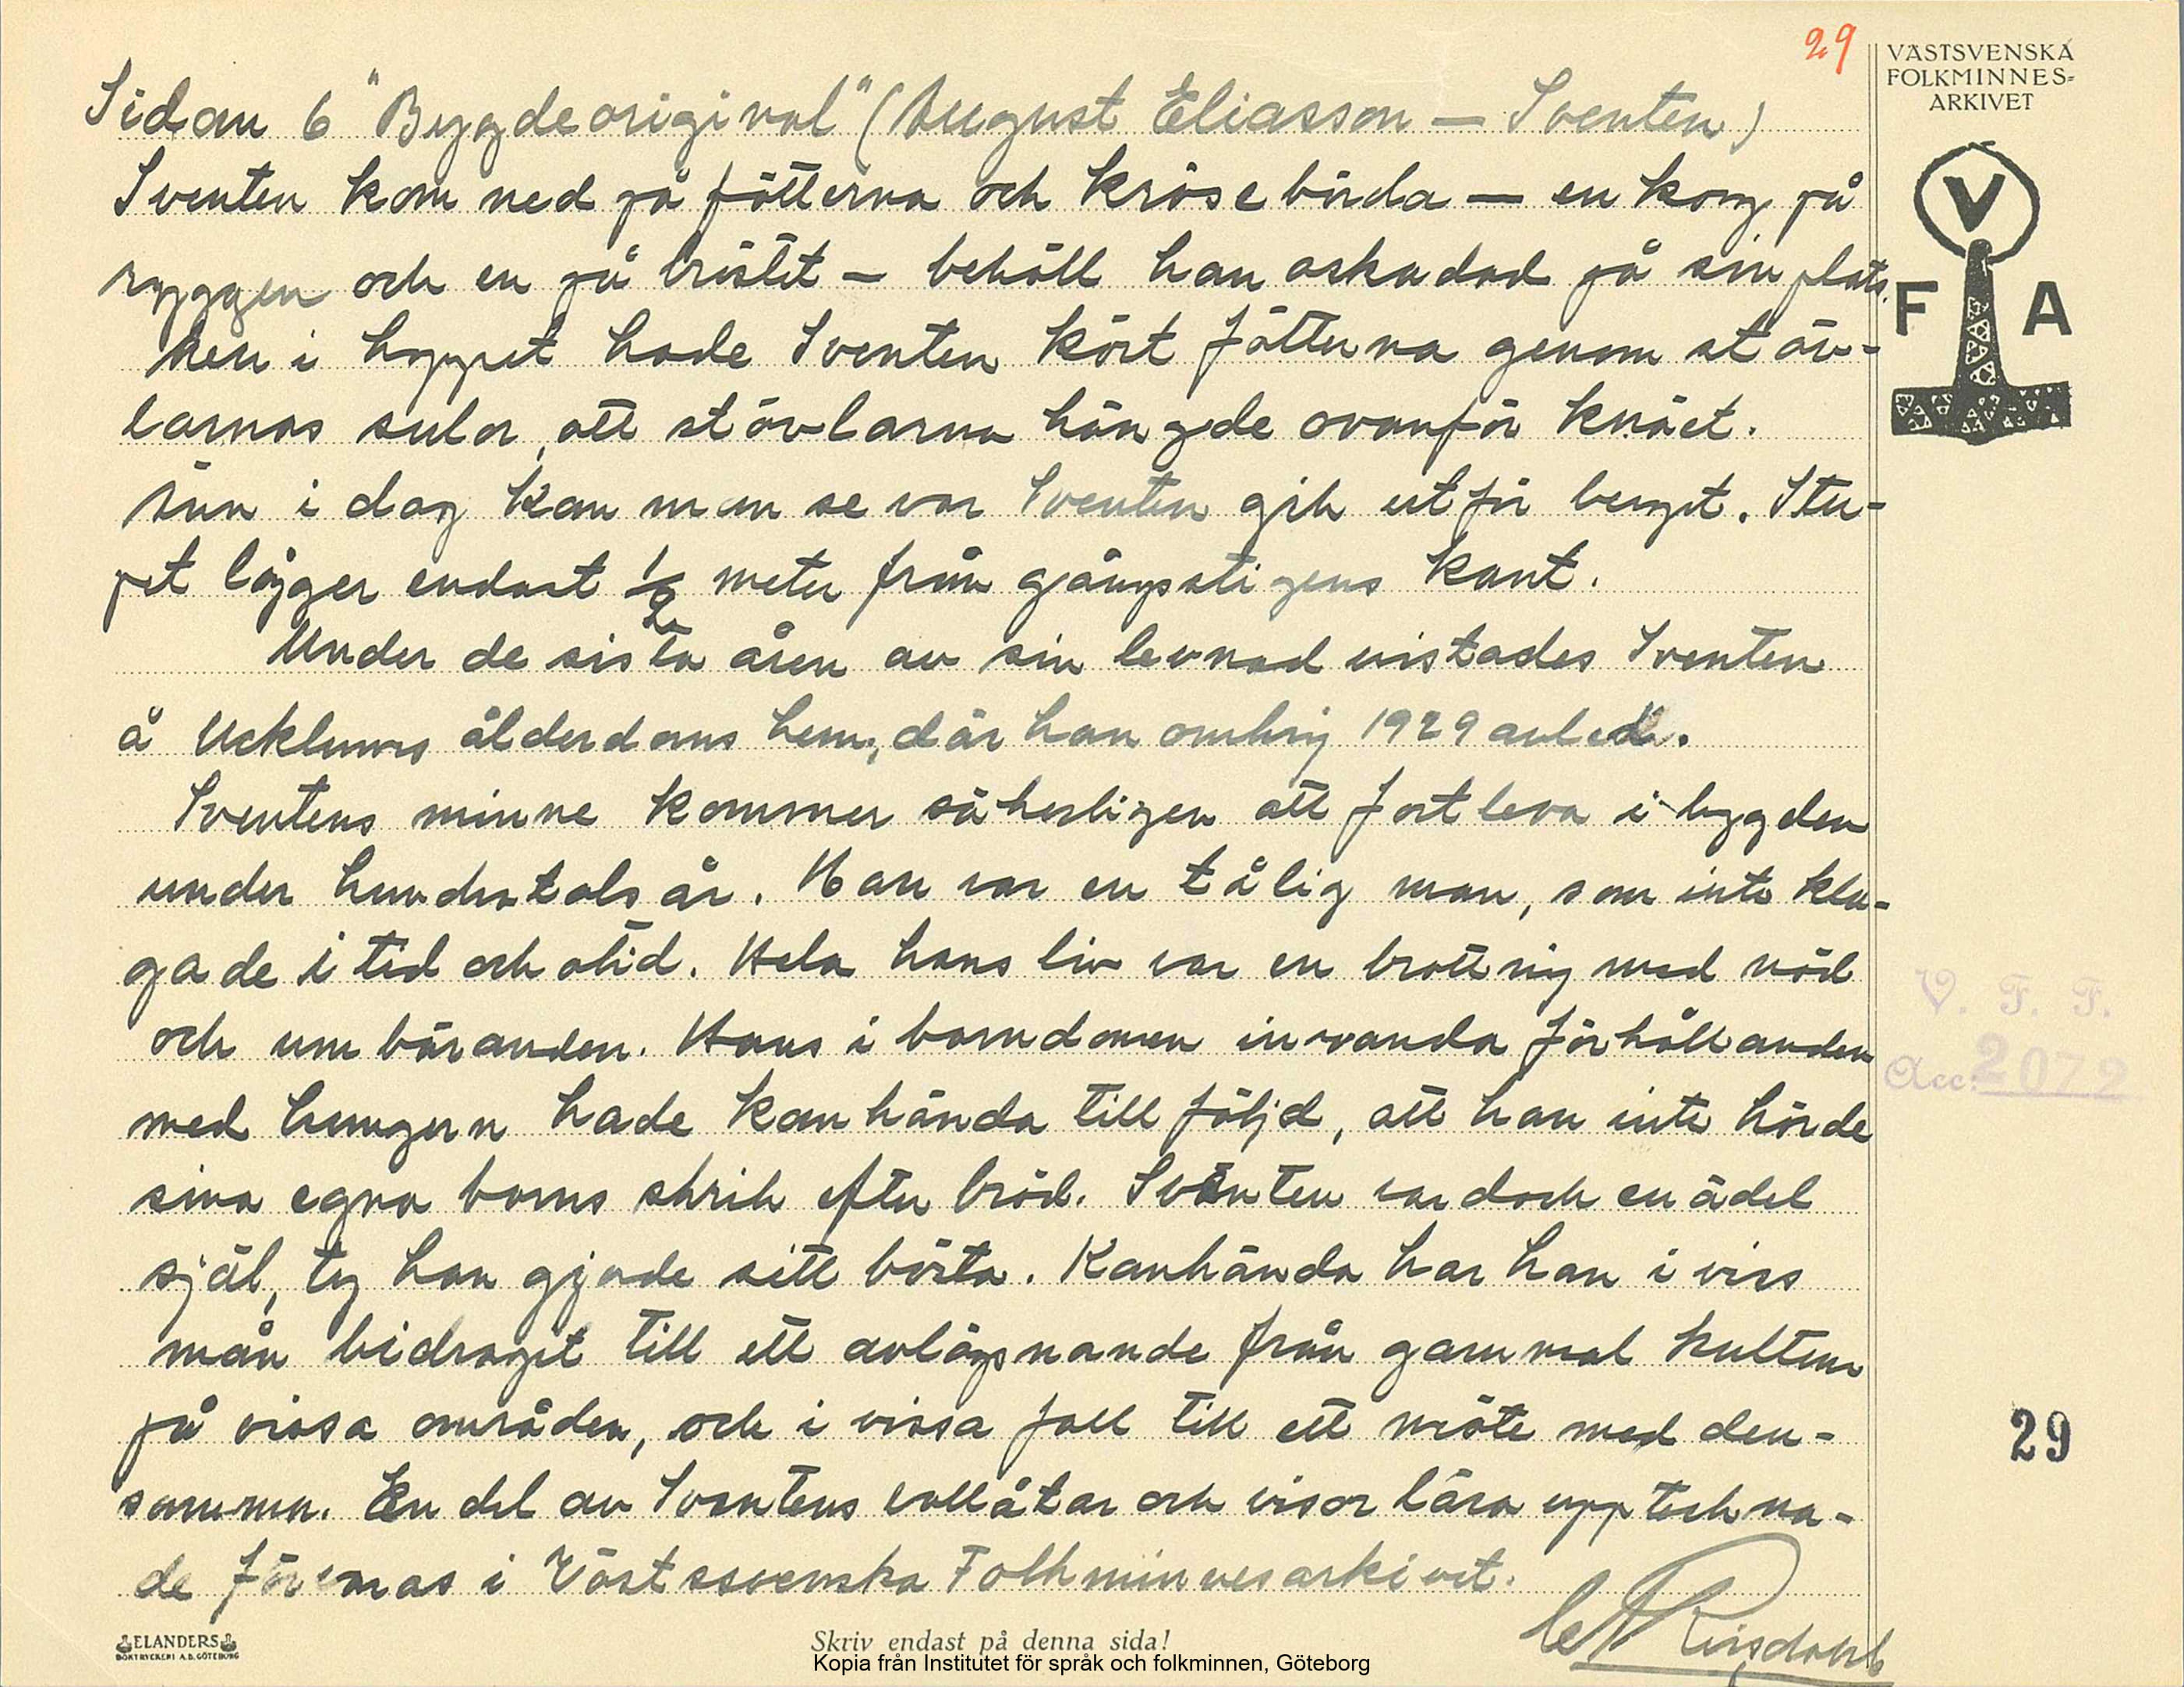 29
VÄSTSVENSKA
FOLKMINNES-
ARKIVET
V
F A
Sidan 6 "Bygdeoriginal" (August Eliasson — Sventen)
Sventen kom ned på fötterna och krösebörda — en korg på
ryggen och en på bröstet — behöll han oskadad på sin plats.
Men i hoppet hade Sventen kört fötterna genom stöv-
larnas sulor, att stövlarna hängde ovanför knäet.
Än i dag kan man se var Sventen gik utför berget. Stu-
pet lägger endast 1/2 meter från gångstigens kant.
Under de sista åren av sin levnad vistades Sventen
å Ucklums ålderdomshem, där han omkring 1929 avled.
Sventens minne kommer säkerligen att fortleva i bygden
under hundratals år. Han var en tålig man, som inte kla-
gade i tid och otid. Hela hans liv var en brottning med nöd
och umbäranden. Hans i barndomen invanda förhållanden
med hungern hade kanhända till följd, att han inte hörde
sina egna barns skrik efter bröd. Sventen var dock en ädel
själ, ty han gjorde sitt bästa. Kanhända har han i viss
mån bidraget till ett avlägsnande från gammal kultur
på vissa områden, och i vissa fall till ett möte med den-
samma. En del av Sventens vallåtar och visor lära uppteckna-
de förvaras i Västssvenska Folkminnesarkivet.
V. F. F.
Acc: 2072
29
ELANDERS
BOKTRYCKERI A.B. GÖTEBORG
Skriv endast på denna sida!
Kopia från Institutet för språk och folkminnen, Göteborg